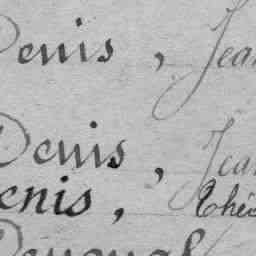 Denis, Jean
Denis, Jean
enis, Thés